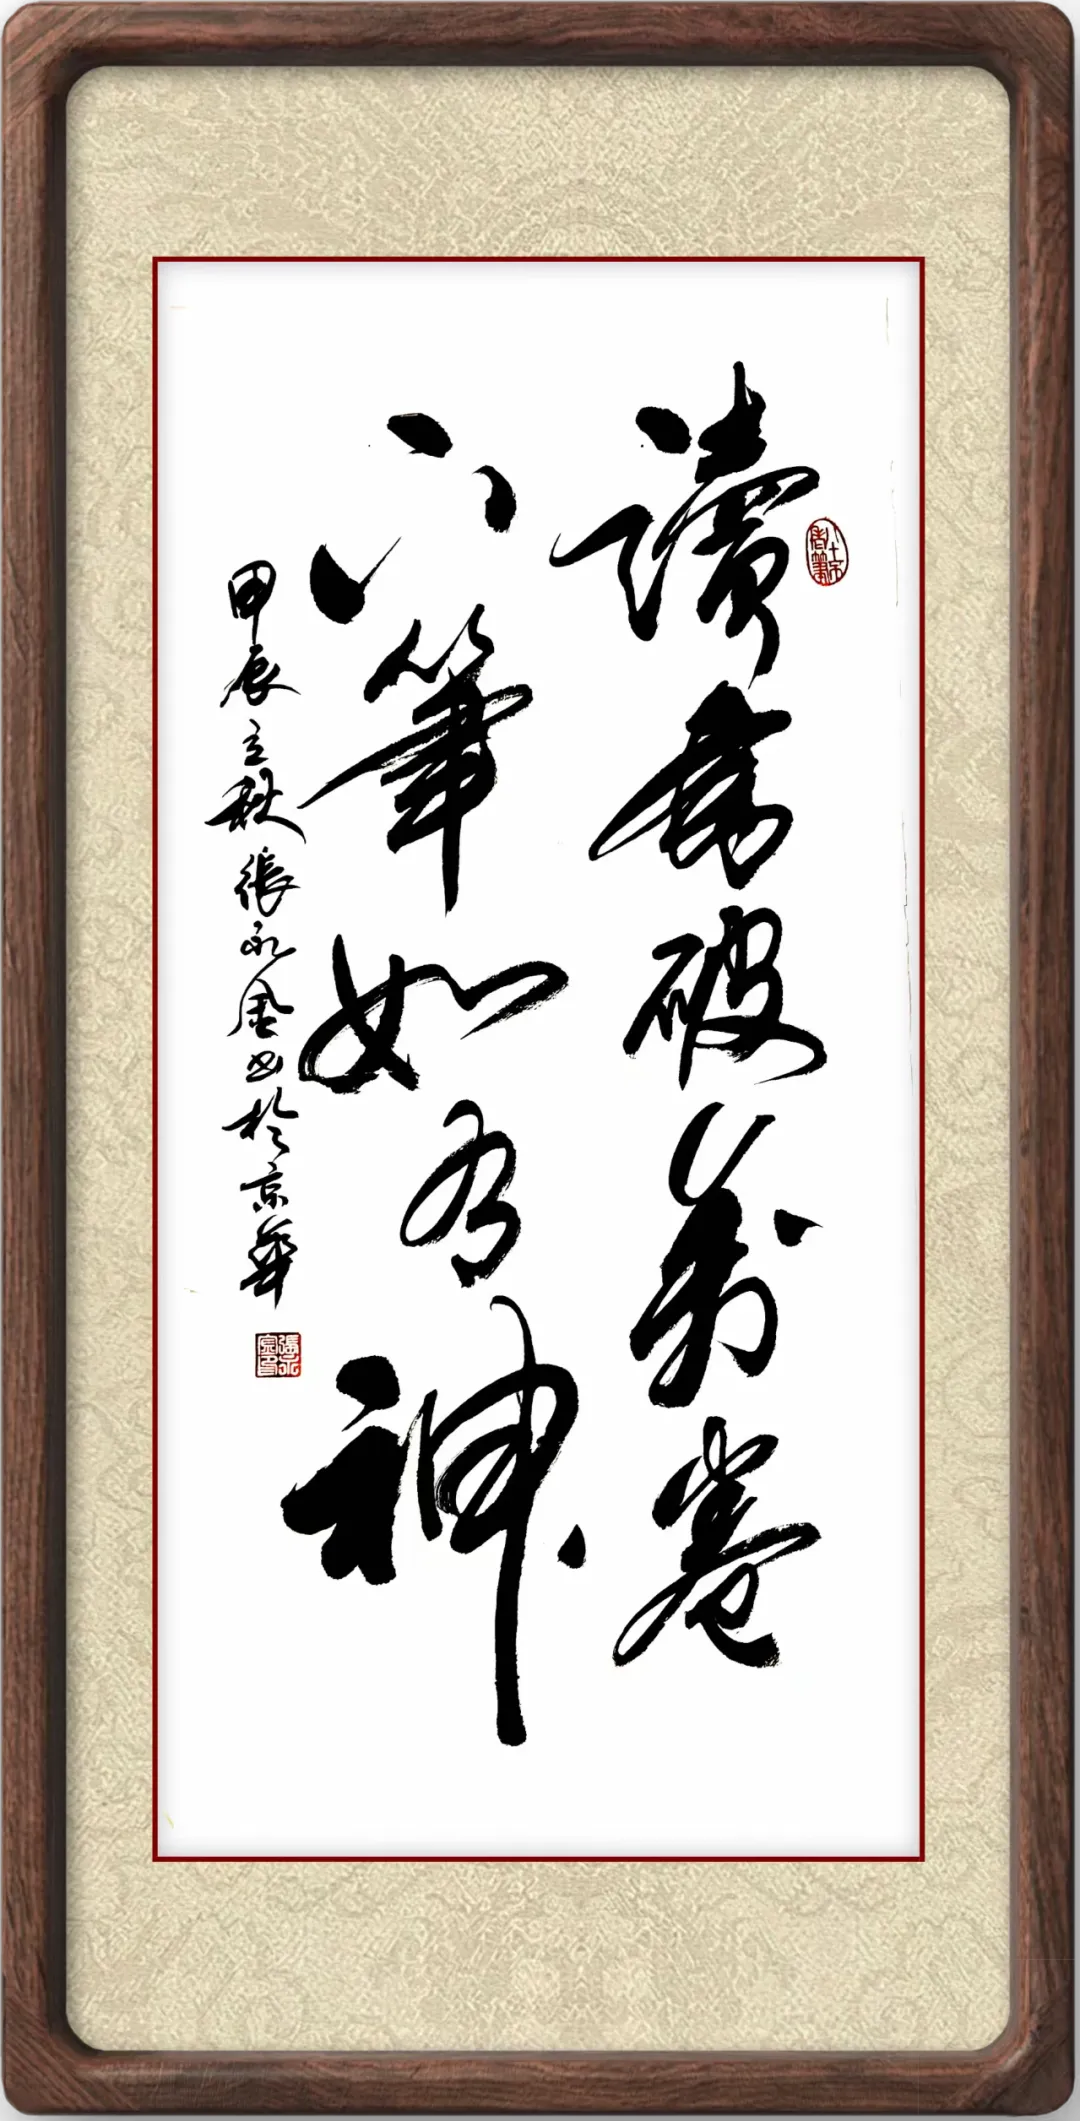 讀書破萬卷
下筆如有神
甲辰立秋張永書於京華